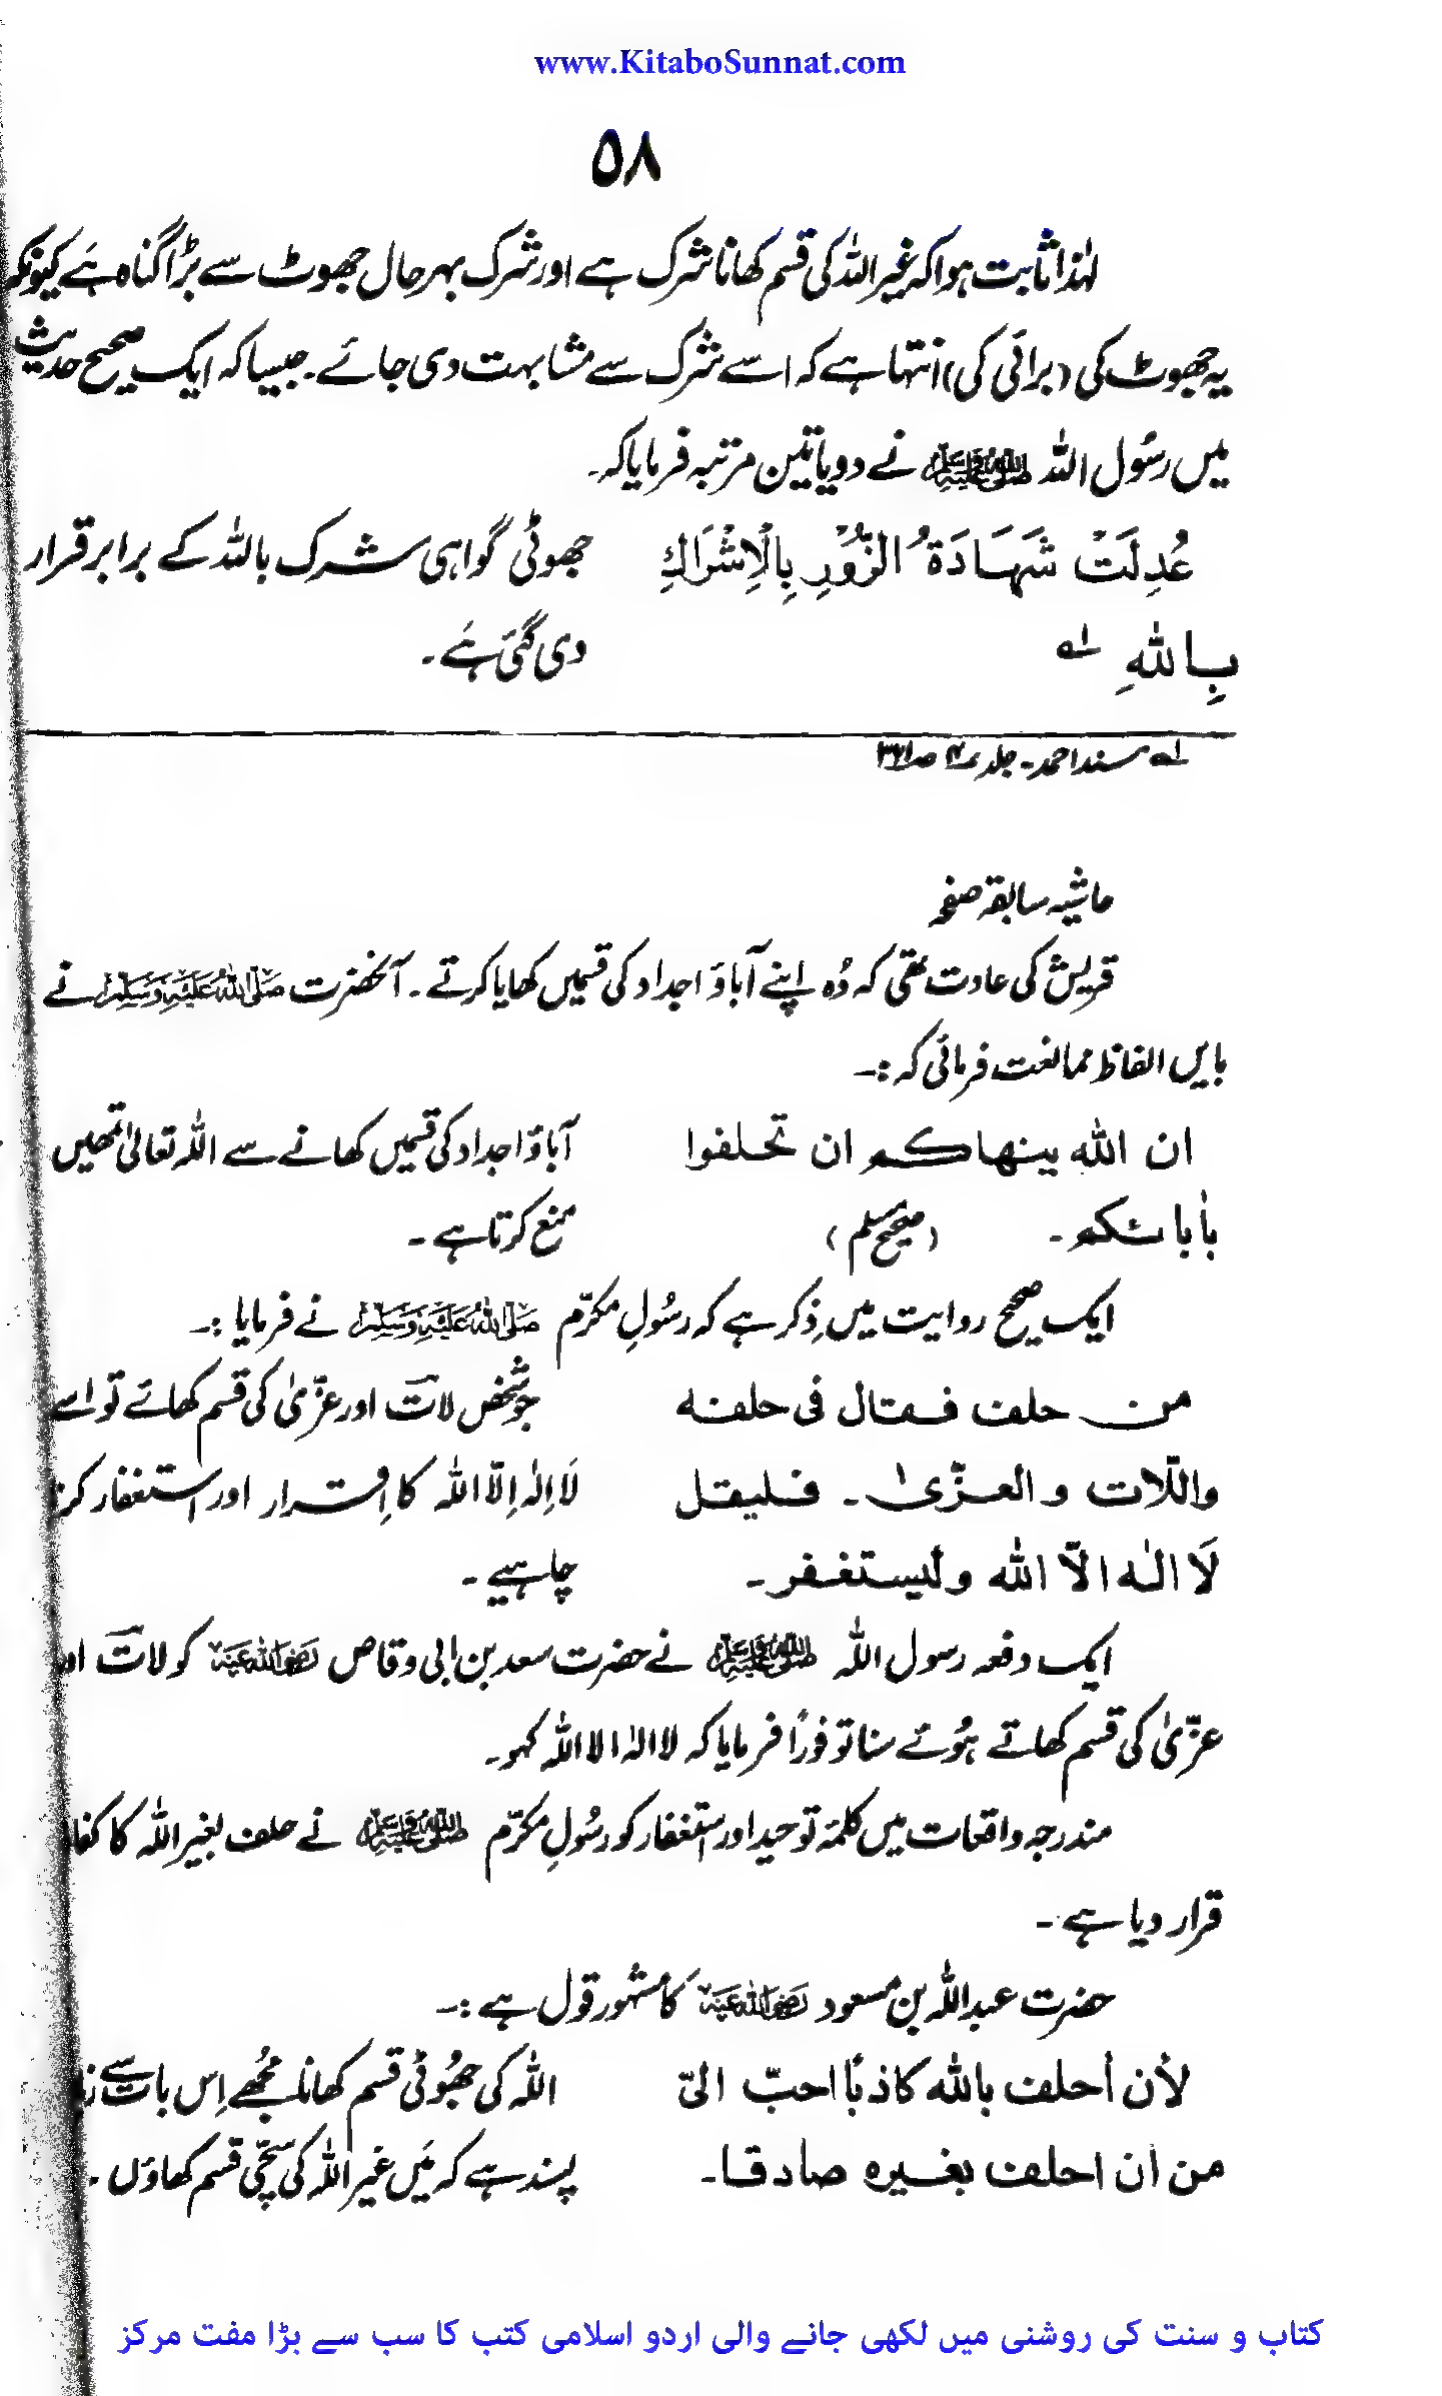 www.KitaboSunnat.com
۵۸
لہٰذا ثابت ہوا کہ غیر اللہ کی قسم کھانا شرک ہے اور شرک بہرحال جھوٹ سے بڑا گناہ ہے کیونکہ
یہ جھوٹ کی (برائی کی) انتہا ہے کہ اسے شرک سے مشابہت دی جائے۔ جیسا کہ ایک صحیح حدیث
میں رسُول اللہ ﷺ نے دو یا تین مرتبہ فرمایا کہ۔
عُدِلَتْ شَهَادَةُ الزُّوْرِ بِالْاِشْرَاكِ جھوٹی گواہی شرک باللہ کے برابر قرار
بِاللهِ لہ دی گئی ہے۔
لہ مسند احمد۔ جلد ۴
حاشیہ سابقہ صفحہ
قریش کی عادت تھی کہ وُہ اپنے آباؤ اجداد کی قسمیں کھایا کرتے۔ آنحضرت صَلَّى اللهُ عَلَيْهِ وَسَلَّمَ نے
بایں الفاظ ممانعت فرمائی کہ :۔
ان اللہ ینھاکم ان تحلفوا آباؤ اجداد کی قسمیں کھانے سے اللہ تعالیٰ تمھیں
بأبائکم۔ (صحیح مسلم) منع کرتا ہے۔
ایک صحیح روایت میں ذِکر ہے کہ رسُولِ مکرّم صَلَّى اللهُ عَلَيْهِ وَسَلَّمَ نے فرمایا :۔
من حلف فقال فی حلفہ جو شخص لات اور عزّیٰ کی قسم کھائے تو اسے
واللّات والعزّیٰ۔ فلیقل لَا اِلٰہ اِلّا اللہ کا اِقرار اور استغفار کرنا
لَا الٰہ الّا اللہ ولیستغفر۔ چاہیے۔
ایک دفعہ رسول اللہ ﷺ نے حضرت سعد بن ابی وقاص رَضِىَ اللهُ عَنْهُ کو لات اور
عزّیٰ کی قسم کھاتے ہُوئے سنا تو فوراً فرمایا کہ لا الہٰ الا اللہ کہو۔
مندرجہ واقعات میں کلمۂ توحید اور استغفار کو رسُولِ مکرّم ﷺ نے حلف بغیر اللہ کا کفارہ
قرار دیا ہے۔
حضرت عبداللہ بن مسعود رَضِىَ اللهُ عَنْهُ کا مشہور قول ہے :۔
لأن أحلف باللہ کاذبًا احبّ الیّ اللہ کی جھُوٹی قسم کھانا مجُھے اِس بات سے
من ان احلف بغیرہ صادقا۔ پسند ہے کہ مَیں غیر اللہ کی سچّی قسم کھاؤں۔
کتاب و سنت کی روشنی میں لکھی جانے والی اردو اسلامی کتب کا سب سے بڑا مفت مرکز